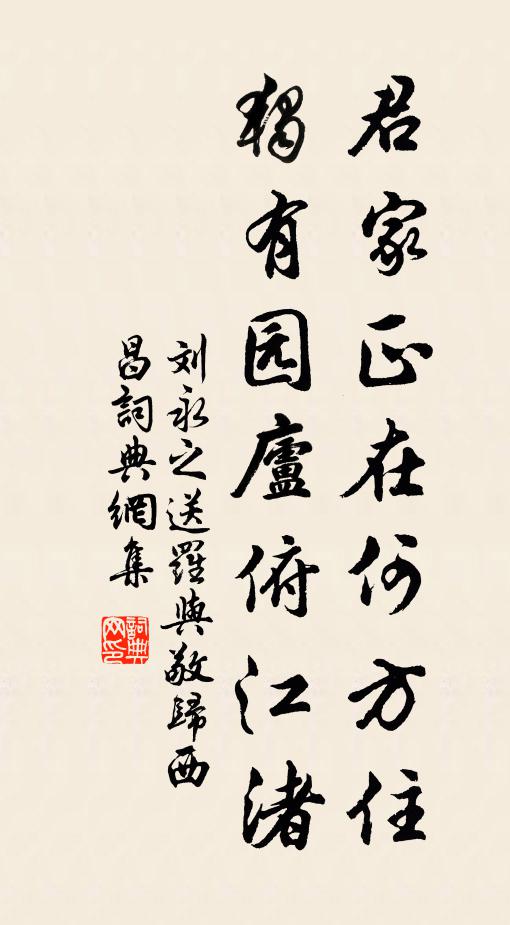 君家正在何方住
獨有园廬俯江渚
刘永之送羅與敬歸西
昌詞典網集
詞典网印